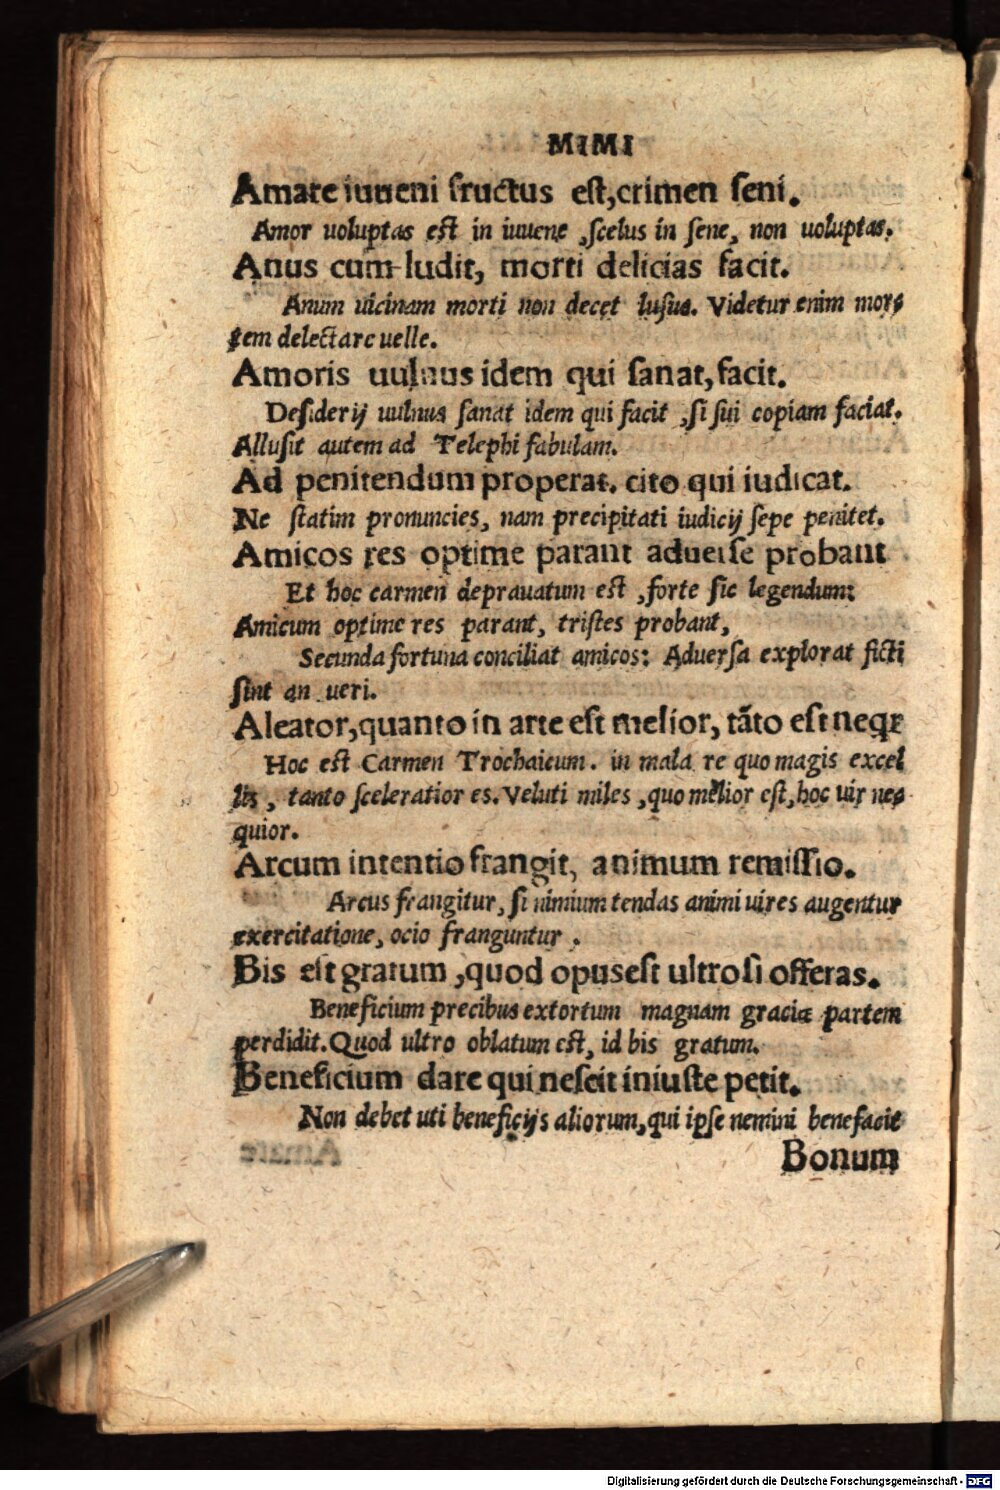 MIMI
Amare iuueni fructus est, crimen seni.
Amor uoluptas est in iuuene, scelus in sene, non uoluptas.
Anus cum ludit, morti delicias facit.
Anum uicinam morti non decet lusus. Videtur enim mor-
tem delectare uelle.
Amoris uulnus idem qui sanat, facit.
Desiderij uulnus sanat idem qui facit, si sui copiam faciat.
Allusit autem ad Telephi fabulam.
Ad penitendum properat. cito qui iudicat.
Ne statim pronuncies, nam precipitati iudicij sepe penitet.
Amicos res optime parant aduerse probant
Et hoc carmen deprauatum est, forte sic legendum:
Amicum optime res parant, tristes probant,
Secunda fortuna conciliat amicos: Aduersa explorat ficti
sint an ueri.
Aleator, quanto in arte est melior, tãto est neqr
Hoc est Carmen Trochaicum. in mala re quo magis excel
lis, tanto sceleratior es. Veluti miles, quo melior est, hoc uir ne-
quior.
Arcum intentio frangit, animum remissio.
Arcus frangitur, si nimium tendas animi uires augentur
exercitatione, ocio franguntur.
Bis est gratum, quod opus est ultro si offeras.
Beneficium precibus extortum magnam graciæ partem
perdidit. Quod ultro oblatum est, id bis gratum.
Beneficium dare qui nescit iniuste petit.
Non debet uti beneficijs aliorum, qui ipse nemini benefacit
Bonum
Digitalisierung gefördert durch die Deutsche Forschungsgemeinschaft - DFG